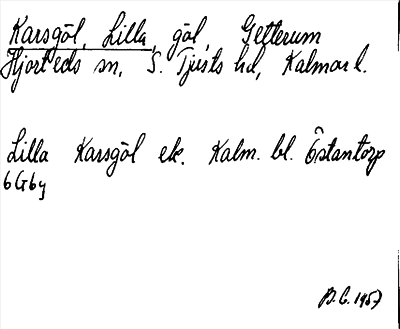 Karsgöl, Lilla, göl, Getterum
Hjorteds sn, S. Tjusts hd, Kalmar l.
Lilla Karsgöl ek. Kalm. bl. Östantorp
6G6y
B.G. 1957